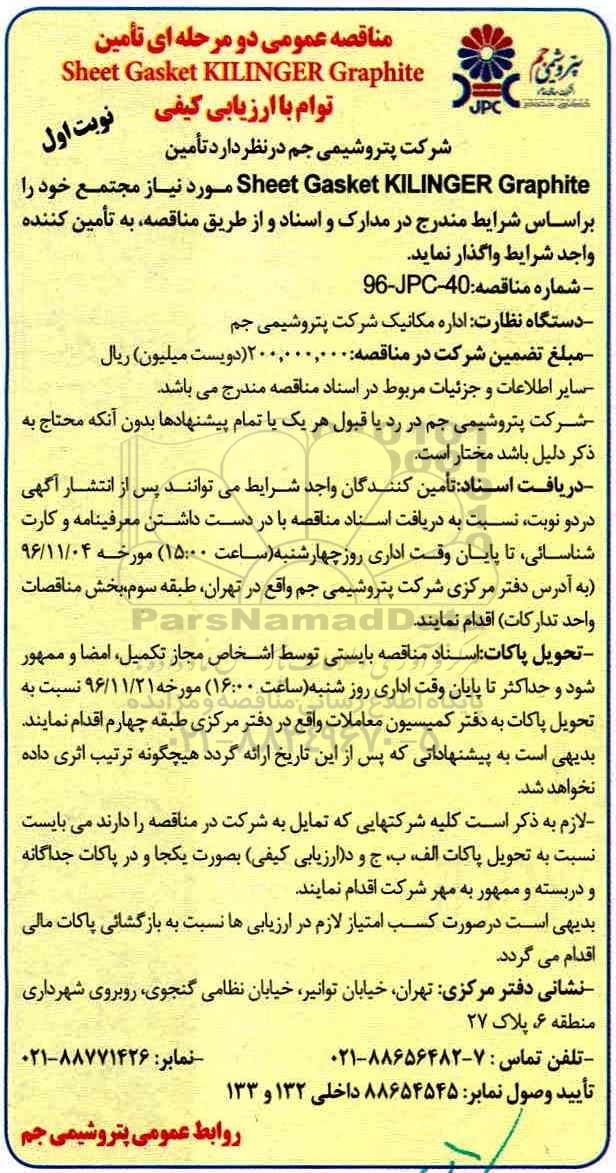 مناقصه عمومی دو مرحله ای تأمین
Sheet Gasket KILINGER Graphite
توام با ارزیابی کیفی
نوبت اول
پتروشیمی جم
JPC
شرکت پتروشیمی جم درنظر دارد تأمین
Sheet Gasket KILINGER Graphite مورد نیاز مجتمع خود را
براساس شرایط مندرج در مدارک و اسناد و از طریق مناقصه، به تأمین کننده
واجد شرایط واگذار نماید.
- شماره مناقصه:96-JPC-40
-دستگاه نظارت: اداره مکانیک شرکت پتروشیمی جم
-مبلغ تضمین شرکت در مناقصه:۲۰۰,۰۰۰,۰۰۰(دویست میلیون) ریال
-سایر اطلاعات و جزئیات مربوط در اسناد مناقصه مندرج می باشد.
-شرکت پتروشیمی جم در رد یا قبول هر یک یا تمام پیشنهادها بدون آنکه محتاج به
ذکر دلیل باشد مختار است.
-دریافت اسناد:تأمین کنندگان واجد شرایط می توانند پس از انتشار آگهی
در دو نوبت، نسبت به دریافت اسناد مناقصه با در دست داشتن معرفینامه و کارت
شناسائی، تا پایان وقت اداری روز چهارشنبه(ساعت ۱۵:۰۰) مورخه ۹۶/۱۱/۰۴
(به آدرس دفتر مرکزی شرکت پتروشیمی جم واقع در تهران، طبقه سوم،بخش مناقصات
واحد تدارکات) اقدام نمایند.
ParsNamadData
-تحویل پاکات:اسناد مناقصه بایستی توسط اشخاص مجاز تکمیل، امضا و ممهور
شود و حداکثر تا پایان وقت اداری روز شنبه(ساعت ۱۶:۰۰) مورخه۹۶/۱۱/۲۱ نسبت به
پایگاه اطلاع رسانی مناقصه و مزایده
تحویل پاکات به دفتر کمیسیون معاملات واقع در دفتر مرکزی طبقه چهارم اقدام نمایند.
۰۲۱-۸۸۳۴۹۶۷۰-۵
بدیهی است به پیشنهاداتی که پس از این تاریخ ارائه گردد هیچگونه ترتیب اثری داده
نخواهد شد.
-لازم به ذکر است کلیه شرکتهایی که تمایل به شرکت در مناقصه را دارند می بایست
نسبت به تحویل پاکات الف، ب، ج و د(ارزیابی کیفی) بصورت یکجا و در پاکات جداگانه
و دربسته و ممهور به مهر شرکت اقدام نمایند.
بدیهی است درصورت کسب امتیاز لازم در ارزیابی ها نسبت به بازگشائی پاکات مالی
اقدام می گردد.
-نشانی دفتر مرکزی: تهران، خیابان توانیر، خیابان نظامی گنجوی، روبروی شهرداری
منطقه ۶، پلاک ۲۷
-تلفن تماس : ۷-۸۸۶۵۶۴۸۲-۰۲۱ -نمابر: ۸۸۷۷۱۴۲۶-۰۲۱
تأیید وصول نمابر: ۸۸۶۵۴۵۴۵ داخلی ۱۳۲ و ۱۳۳
روابط عمومی پتروشیمی جم